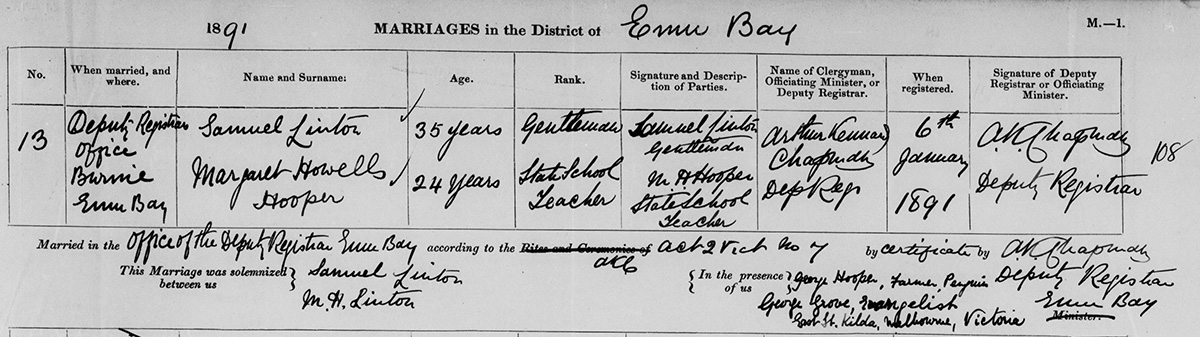 1891 MARRIAGES in the District of Emu Bay M.—1.
No. When married, and where. Name and Surname: Age. Rank. Signature and Description of Parties. Name of Clergyman, Officiating Minister, or Deputy Registrar. When registered. Signature of Deputy Registrar or Officiating Minister.
13 Deputy Registrar Office Burnie Emu Bay
Samuel Linton 35 years Gentleman Samuel Linton Gentleman
Margaret Howells Hooper 24 years State School Teacher M H Hooper State School Teacher
Arthur Kennard Chapman Dep Reg
6th January 1891
A.K. Chapman Deputy Registrar
108
Married in the Office of the Deputy Registrar Emu Bay according to the Rites and Ceremonies of Act 2 Vict No 7 by certificate by A.K. Chapman
AKC
This Marriage was solemnized between us Samuel Linton M. H. Linton
In the presence of us George Hooper, Farmer, Penguin
George Grove, Evangelist
East St. Kilda, Melbourne, Victoria
Deputy Registrar
Emu Bay
Minister.